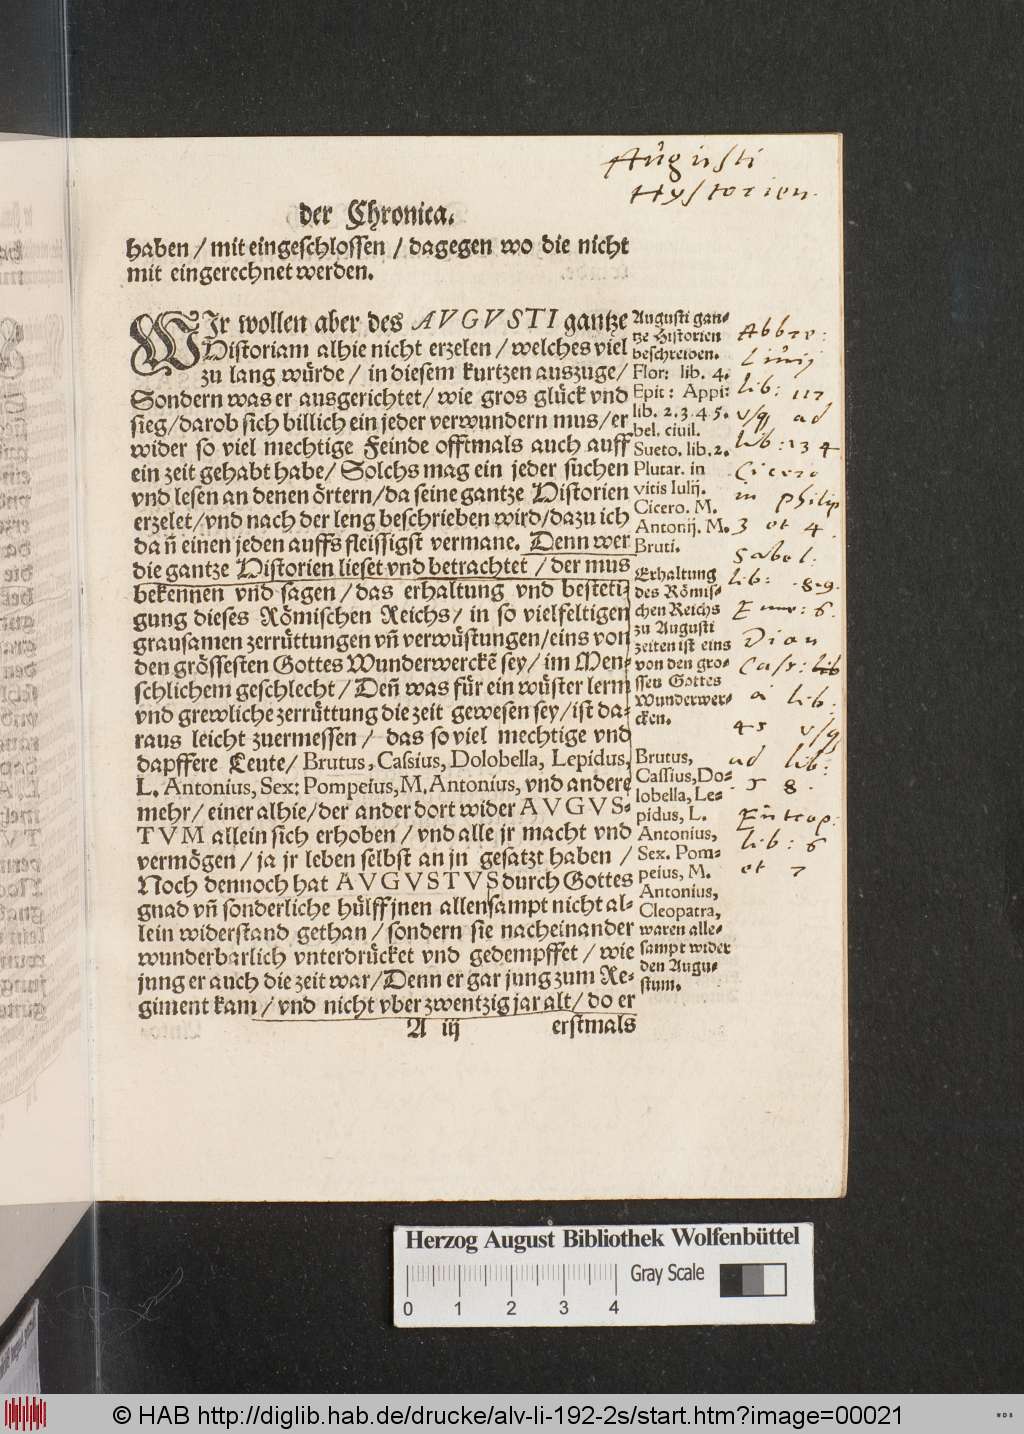 Augusti
Hystorien.
der Chronica.
haben / mit eingeschlossen / dagegen wo die nicht
mit eingerechnet werden.
WIr wollen aber des AVGVSTI gantze
Historiam alhie nicht erzelen / welches viel
zu lang würde / in diesem kurtzen auszuge /
Sondern was er ausgerichtet / wie gros glück vnd
sieg / darob sich billich ein jeder verwundern mus / er
wider so viel mechtige Feinde offtmals auch auff
ein zeit gehabt habe / Solchs mag ein jeder suchen
vnd lesen an denen örtern / da seine gantze Historien
erzelet / vnd nach der leng beschrieben wird / dazu ich
da n̄ einen jeden auffs fleissigst vermane. Denn wer
die gantze Historien lieset vnd betrachtet / der mus
bekennen vnd sagen / das erhaltung vnd besteti-
gung dieses Römischen Reichs / in so vielfeltigen
grausamen zerrüttungen vn̄ verwüstungen / eins von
den grössesten Gottes Wunderwerckẽ sey / im Men-
schlichem geschlecht / Den̄ was für ein wüster lerm
vnd grewliche zerrüttung die zeit gewesen sey / ist da-
raus leicht zuermessen / das so viel mechtige vnd
dapffere Leute / Brutus, Cassius, Dolobella, Lepidus,
L. Antonius, Sex: Pompeius, M. Antonius, vnd andere
mehr / einer alhie / der ander dort wider AVGVS-
TVM allein sich erhoben / vnd alle jr macht vnd
vermögen / ja jr leben selbst an jn gesatzt haben /
Noch dennoch hat AVGVSTVS durch Gottes
gnad vn̄ sonderliche hülff jnen allensampt nicht al-
lein widerstand gethan / sondern sie nacheinander
wunderbarlich vnterdrücket vnd gedempffet / wie
jung er auch die zeit war / Denn er gar jung zum Re-
giment kam / vnd nicht vber zwentzig jar alt / do er
A iij
erstmals
Augusti gan-
tze Historien
beschreiben.
Flor: lib. 4.
Epit: Appi:
lib. 2.3.4.5.
bel. ciuil.
Sueto. lib. 2.
Plutar. in
vitis Iulij.
Cicero. M.
Antonij. M.
Bruti.
Erhaltung
des Römis-
chen Reichs
zu Augusti
zeiten ist eins
von den gro-
ssen Gottes
Wunderwer-
cken.
Brutus,
Cassius, Do-
lobella, Le-
pidus, L.
Antonius,
Sex. Pom-
peius, M.
Antonius,
Cleopatra,
waren alle-
sampt wider
den Augu-
stum.
Abbre:
Liuij
lib: 117
vsq ad
lib: 134
Cicero
in philip
3 et 4.
Sabel.
lib: 8.9.
6.
Dion
Cass: lib
a lib.
45 vsq
ad lib:
58.
Eutrop:
lib: 6
et 7
Herzog August Bibliothek Wolfenbüttel
Gray Scale
0 1 2 3 4
© HAB http://diglib.hab.de/drucke/alv-li-192-2s/start.htm?image=00021